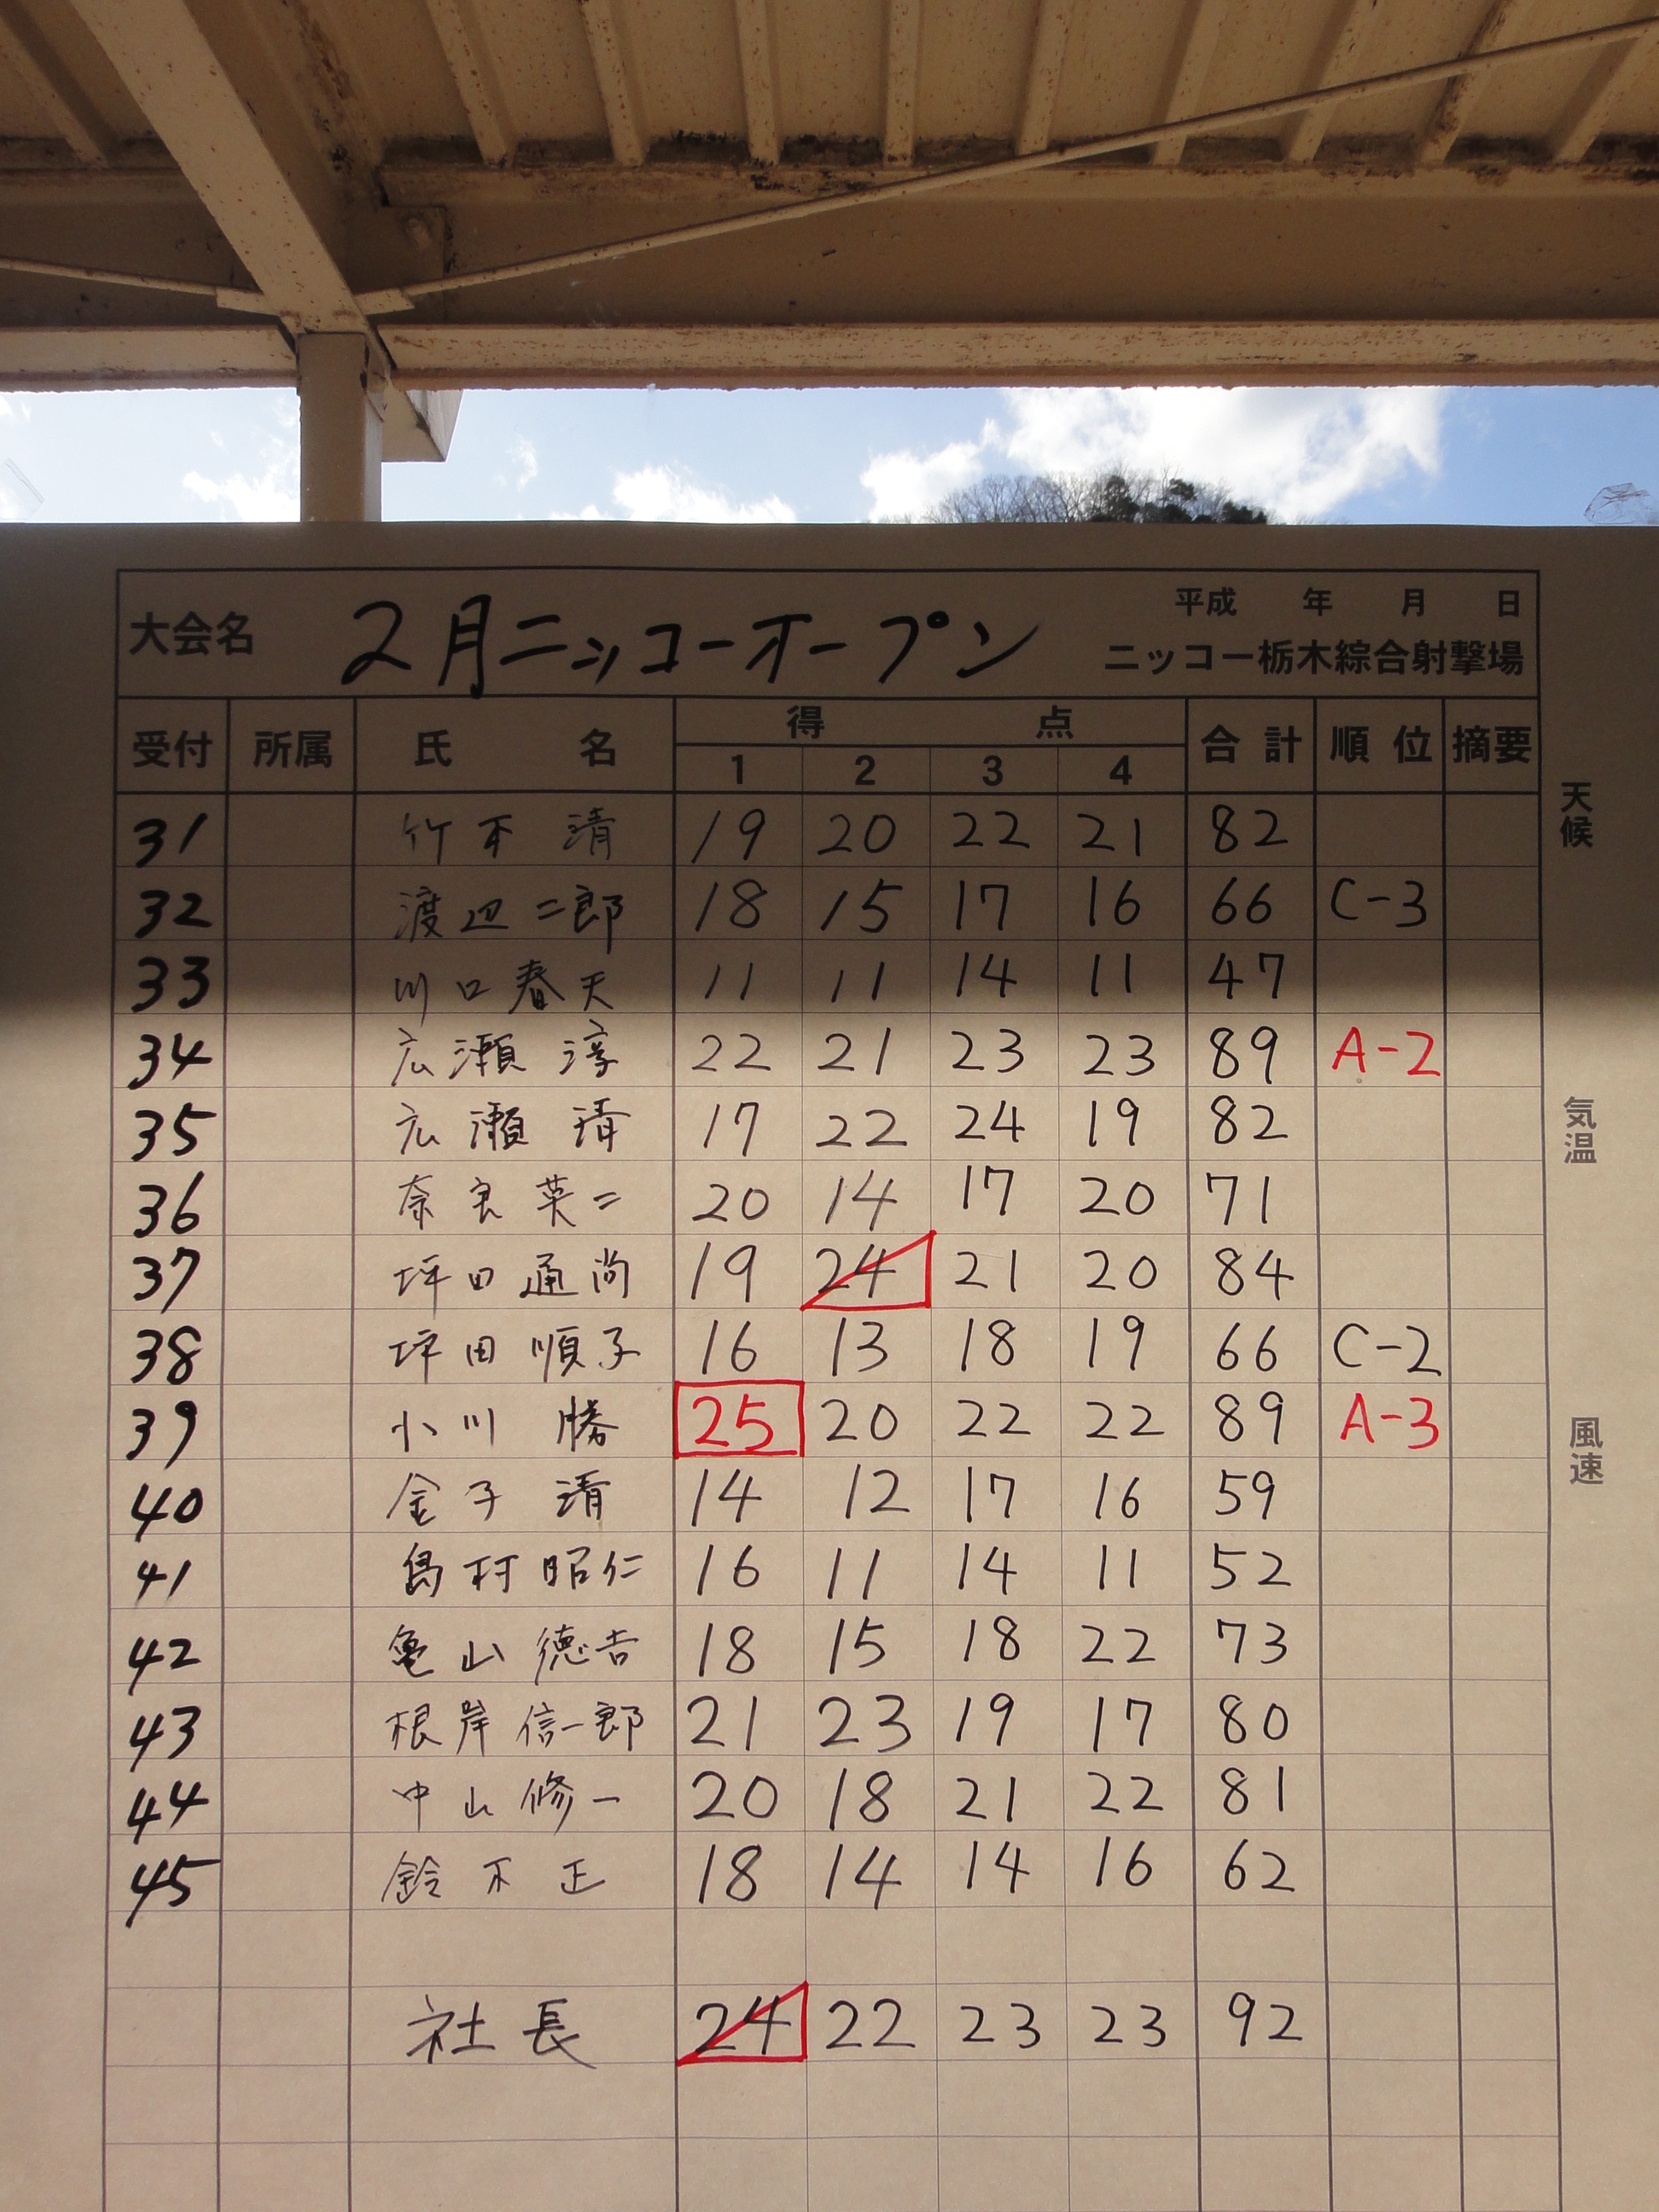 大会名 2月ニッコーオープン 平成 年 月 日
ニッコー栃木綜合射撃場
受付 所属 氏 名 得 点 合計 順位 摘要
1 2 3 4
31 竹本 清 19 20 22 21 82
32 渡辺二郎 18 15 17 16 66 C-3
33 川口春天 11 11 14 11 47
34 広瀬 淳 22 21 23 23 89 A-2
35 広瀬 清 17 22 24 19 82
36 奈良英二 20 14 17 20 71
37 坪田通尚 19 24 21 20 84
38 坪田順子 16 13 18 19 66 C-2
39 小川 勝 25 20 22 22 89 A-3
40 金子 清 14 12 17 16 59
41 島村昭仁 16 11 14 11 52
42 亀山徳吉 18 15 18 22 73
43 根岸信一郎 21 23 19 17 80
44 中山修一 20 18 21 22 81
45 鈴木正 18 14 14 16 62
社長 24 22 23 23 92
天候
気温
風速